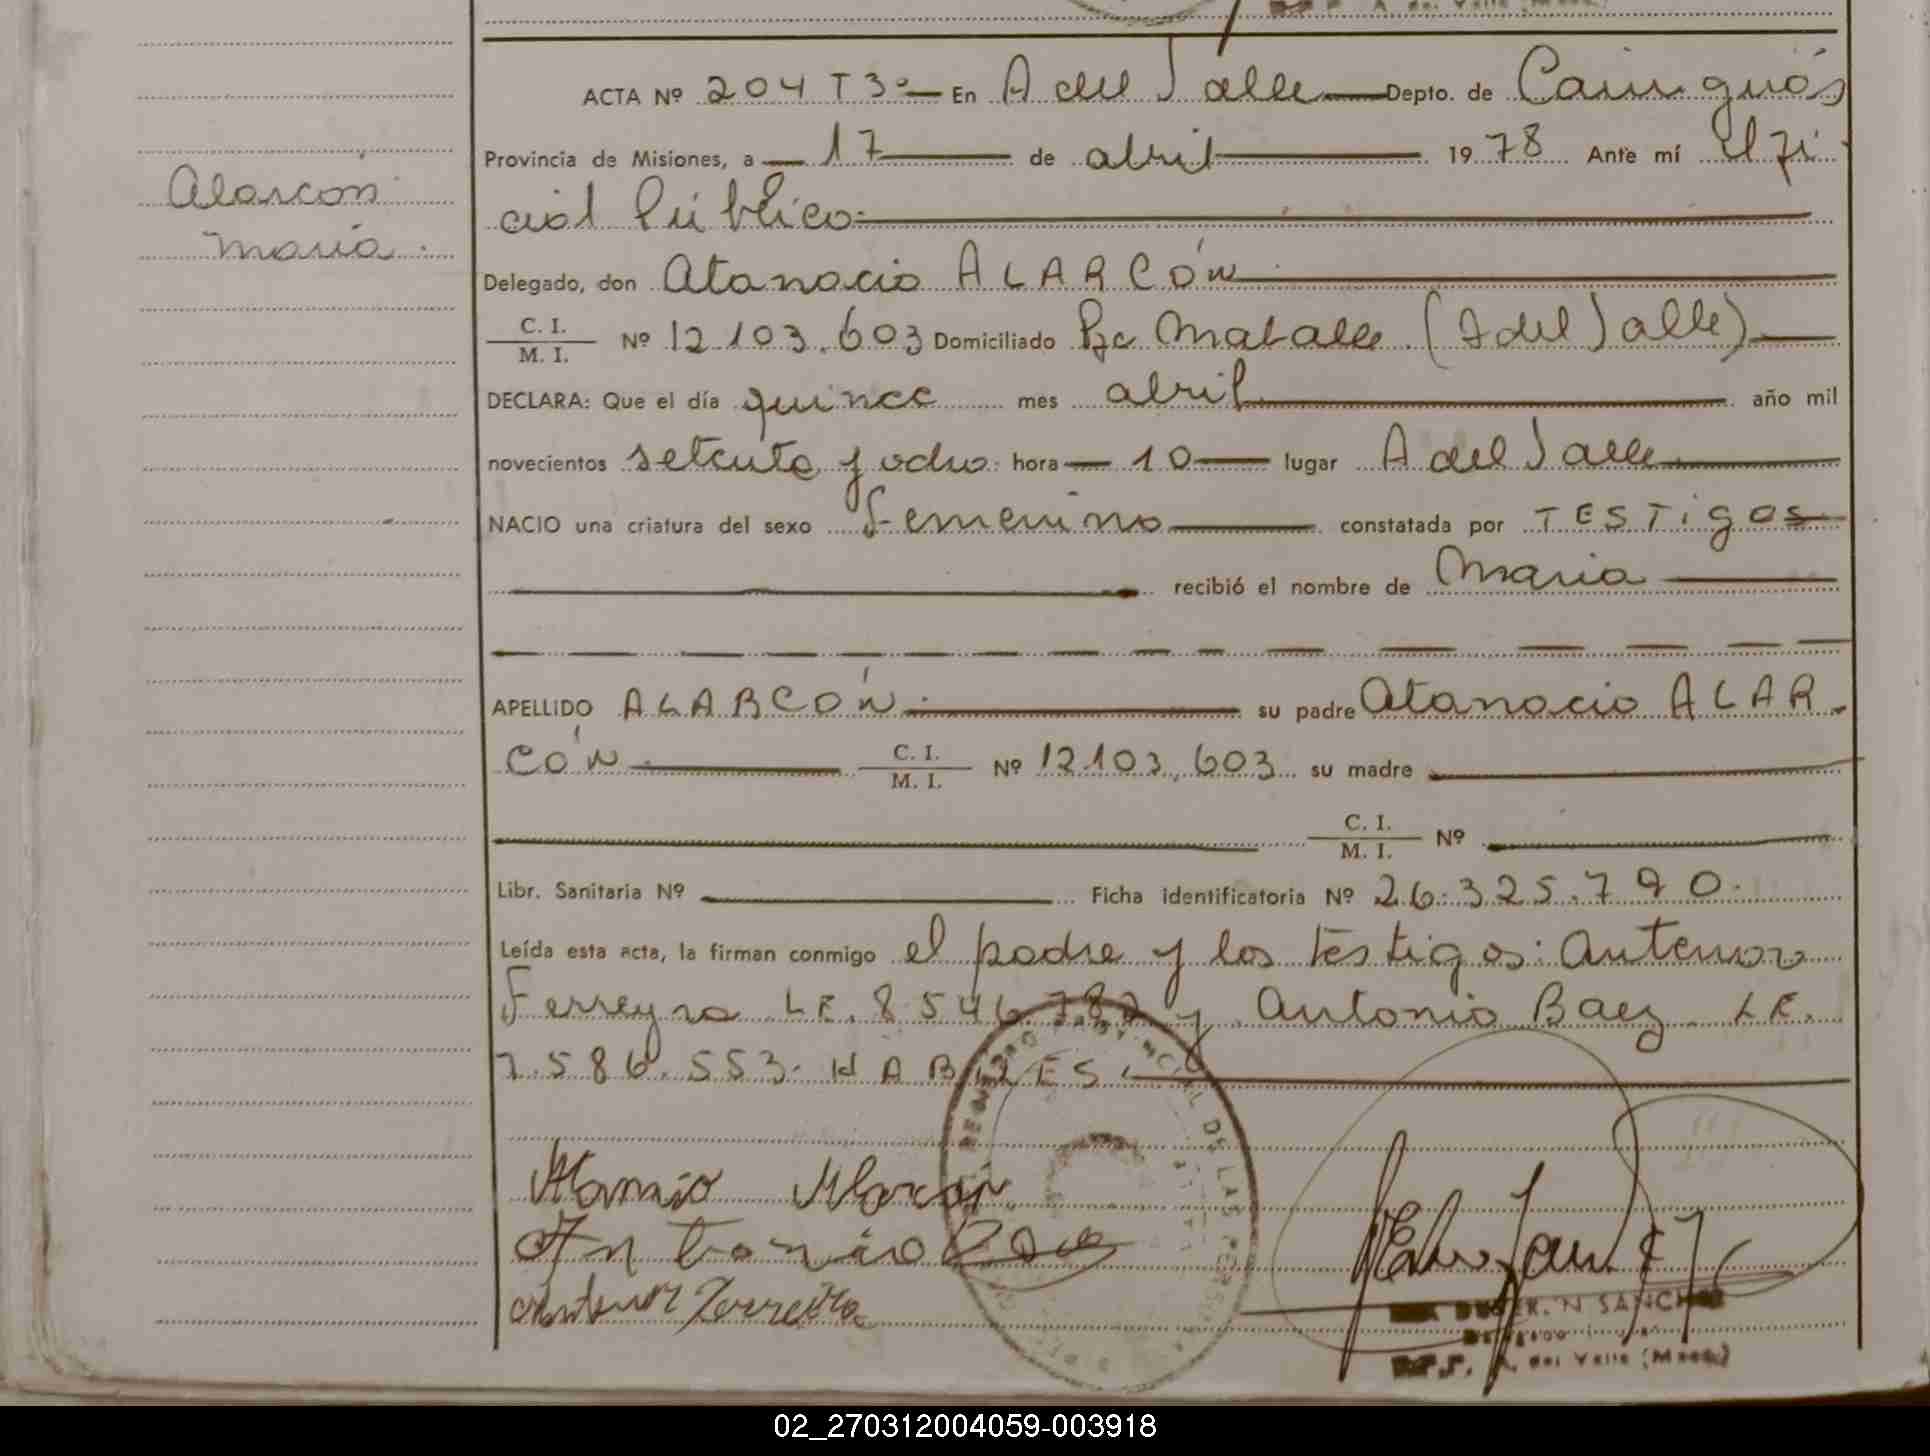 ACTA Nº 204 T3º En A del Valle Depto. de Cainguás
Provincia de Misiones, a 17 de abril 1978 Ante mí Ofi
cial Público
Alarcon
Maria.
Delegado, don Atanacio ALARCÓN
C. I.
M. I. Nº 12.103.603 Domiciliado (A del Valle)
DECLARA: Que el día quince mes abril año mil
novecientos setenta y ocho hora 10 lugar A del Valle
NACIO una criatura del sexo femenino constatada por TESTigos
recibió el nombre de Maria
APELLIDO ALARCÓN. su padre Atanacio ALAR
CÓN C. I.
M. I. Nº 12.103.603 su madre
C. I.
M. I. Nº
Libr. Sanitaria Nº Ficha identificatoria Nº 26.325.790.
Leída esta acta, la firman conmigo el padre y los testigos: Antenor
Ferreyra LE. 8.546.787 y Antonio Baez LE.
7.586.553. HABILES.
Antonio
SANCHEZ
A. del Valle
02_270312004059-003918